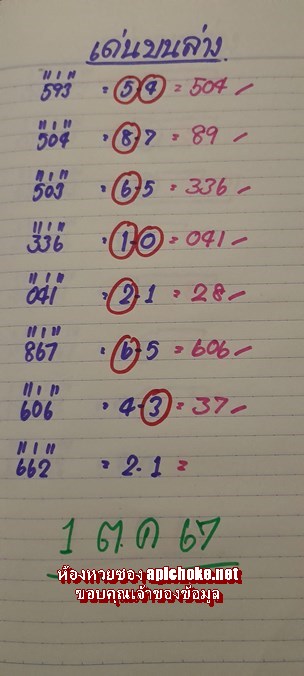 เด่นบนล่าง
593 = 5-4 = 504
504 = 8-7 = 89
503 = 6-5 = 336
336 = 1-0 = 041
041 = 2-1 = 28
867 = 6-5 = 606
606 = 4-3 = 37
662 = 2-1 =
1 ต.ค 67
ห้องหวยซอง apichoke.net
ขอบคุณเจ้าของข้อมูล